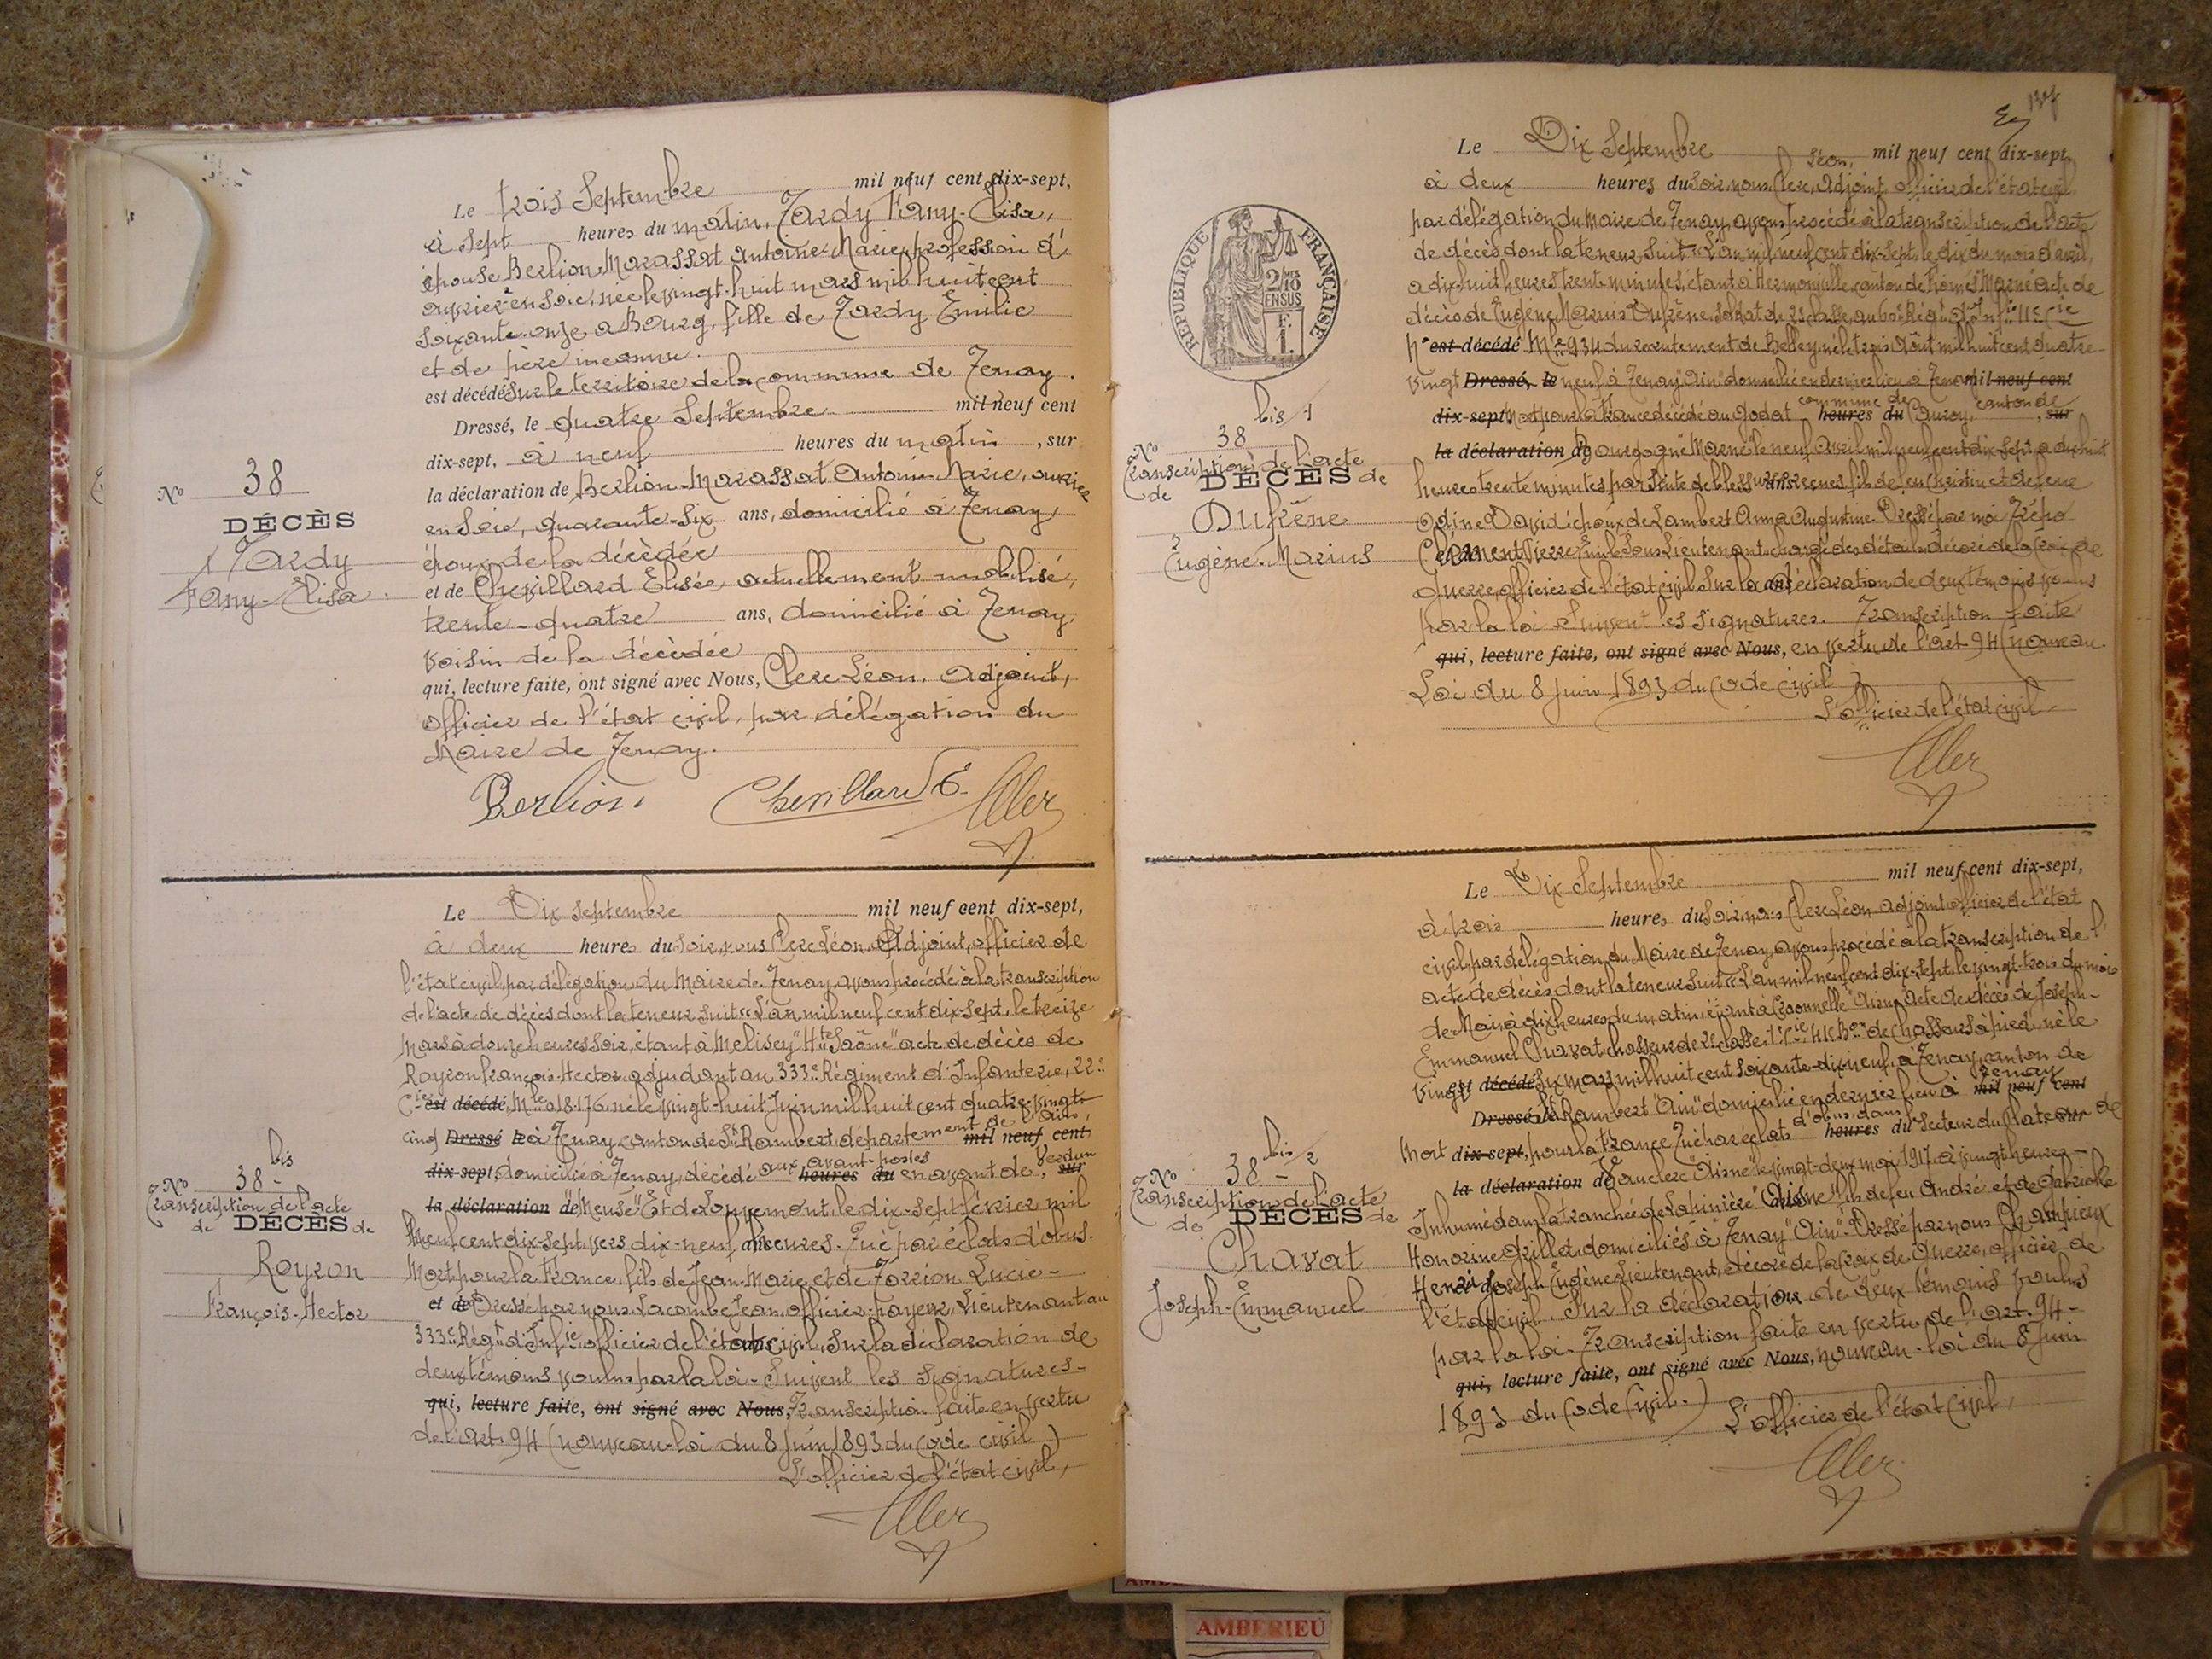 Le trois Septembre mil neuf cent dix-sept,
à Sept heures du matin, Tardy Fany-Élisa,
épouse Berlion-Marassat Antoine-Marie, profession d'
ouvrière en soie, née le vingt-huit mars mil huit cent
soixante-onze à Bourg, fille de Tardy Émilie
et de père inconnu.
est décédé sur le territoire de la commune de Tenay.
Dressé, le quatre Septembre mil neuf cent
dix-sept, à neuf heures du matin, sur
la déclaration de Berlion-Marassat Antoine-Marie, ouvrier
en soie, quarante-six ans, domicilié à Tenay,
époux de la décédée
et de Chevillard Élisée, actuellement mobilisé,
trente-quatre ans, domicilié à Tenay,
voisin de la décédée
qui, lecture faite, ont signé avec Nous, Clerc Léon, Adjoint,
officier de l'état civil, par délégation du
Maire de Tenay.
Berlion. Chevillard E. Clerc
No 38
DÉCÈS
Tardy
Fany-Élisa
Le Dix Septembre mil neuf cent dix-sept,
à deux heures du Soir, nous Clerc Léon, Adjoint, officier de
l'état civil, par délégation du Maire de Tenay, avons procédé à la transcription
de l'acte de décès dont la teneur suit "L'an mil neuf cent dix-sept, le treize
Mars à douze heures soir, étant à Melisey "Hte Saône" acte de décès de
Royron François-Hector, adjudant au 333e Régiment d'Infanterie, 22e
Cie est décédé, Mle 018176, né le vingt-huit Juin mil huit cent quatre-vingt-
cinq Dressé le à Tenay, canton de St Rambert, département de l'Ain, mil neuf cent
dix-sept, domicilié à Tenay, décédé aux avant-postes heures du en avant de Verdun, sur
la déclaration de "Meuse" Est de Louvemont, le dix-sept février mil
neuf cent dix-sept, vers dix-neuf ans heures. Tué par éclats d'obus.
Mort pour la France, fils de Jean-Marie et de Torrion Lucie-
et de Dressé par nous Lacombe Jean, officier-payeur, Lieutenant au
333e Régt d'Infie, officier de l'état ans civil, sur la déclaration de
deux témoins voulus par la loi - Suivent les signatures-
qui, lecture faite, ont signé avec Nous, Transcription faite en vertu
de l'art. 94 (nouveau-loi du 8 Juin 1893 du Code civil)
L'officier de l'état civil,
Clerc
No 38 bis
Transcription de l'acte
de DÉCÈS de
Royron
François-Hector
Le Dix Septembre mil neuf cent dix-sept,
à deux heures du Soir, nous Clerc Léon, Adjoint, officier de l'état civil
par délégation du Maire de Tenay, avons procédé à la transcription de l'acte
de décès dont la teneur suit "L'an mil neuf cent dix-sept, le dix du mois d'avril,
à dix huit heures trente minutes, étant à Hermonville, canton de Fismes "Marne" acte de
décès de Eugène Marius Dufrène, soldat de 2e classe, au 60e Régt d'Infie, 11e Cie
No est décédé Mle 934 du recrutement de Belley, né le trois Août mil huit cent quatre-
vingt Dressé, le neuf à Tenay "Ain" domicilié en dernier lieu à Tenay mil neuf cent
dix-sept Mort pour la France décédé au Godat commune de heures du Cauroy, canton de, sur
la déclaration de Bourgogne "Marne" le neuf avril mil neuf cent dix-sept à dix huit
heures trente minutes par suite de blessures ans reçues, fils de feu Christin et de feue
Odine David, époux de Lambert Anna Augustine. Dressé par moi Trépo
Clément Pierre Émile, Sous-Lieutenant chargé des détails, décoré de la Croix de
guerre, officier de l'état civil, sur la ans déclaration de deux témoins voulus
par la loi - Suivent les signatures. Transcription faite
qui, lecture faite, ont signé avec Nous, en vertu de l'art. 94 (nouveau
Loi du 8 Juin 1893 du Code civil)
L'officier de l'état civil
Clerc
RÉPUBLIQUE FRANÇAISE
2/10 EN SUS
F. 1.
No 38 bis 1
Transcription de l'acte
de DÉCÈS de
Dufrène
Eugène-Marius
Le Dix Septembre mil neuf cent dix-sept,
à trois heures du Soir, nous Clerc Léon, adjoint, officier de l'état
civil, par délégation du Maire de Tenay, avons procédé à la transcription de l'
acte de décès dont la teneur suit "L'an mil neuf cent dix-sept, le vingt-trois du mois
de Mai à dix heures du matin, étant à Craonnelle "Aisne" Acte de décès de Joseph-
Emmanuel Chavat, chasseur de 2e classe, 1e Cie, 41e Bon de chasseurs à pied, né le
vingt est décédé six mars mil huit cent soixante-dix-neuf, à Tenay, canton de
Dressé, le St Rambert "Ain" domicilié en dernier lieu à Tenay mil neuf cent
Mort dix-sept, pour la France Tué par éclats d'obus, dans heures du secteur du Plateau sur de
la déclaration de Vauclerc "Aisne" le vingt-deux mai 1917, à vingt heures-
Inhumé dans la tranchée de Lapinière "Aisne" fils de feu André et de Gabrielle
Honorine Grillet, domiciliés à Tenay "Ain". Dressé par nous Champieux
Henri Joseph Eugène Lieutenant, décoré de la Croix de Guerre, officier de
l'état civil, sur la déclaration de deux témoins voulus
par la loi - Transcription faite en vertu de l'art. 94-
qui, lecture faite, ont signé avec Nous, nouveau - loi du 8 Juin
1893 du Code Civil.) L'officier de l'état Civil,
Clerc
No 38 bis 2
Transcription de l'acte
de DÉCÈS de
Chavat
Joseph-Emmanuel
AMBERIEU